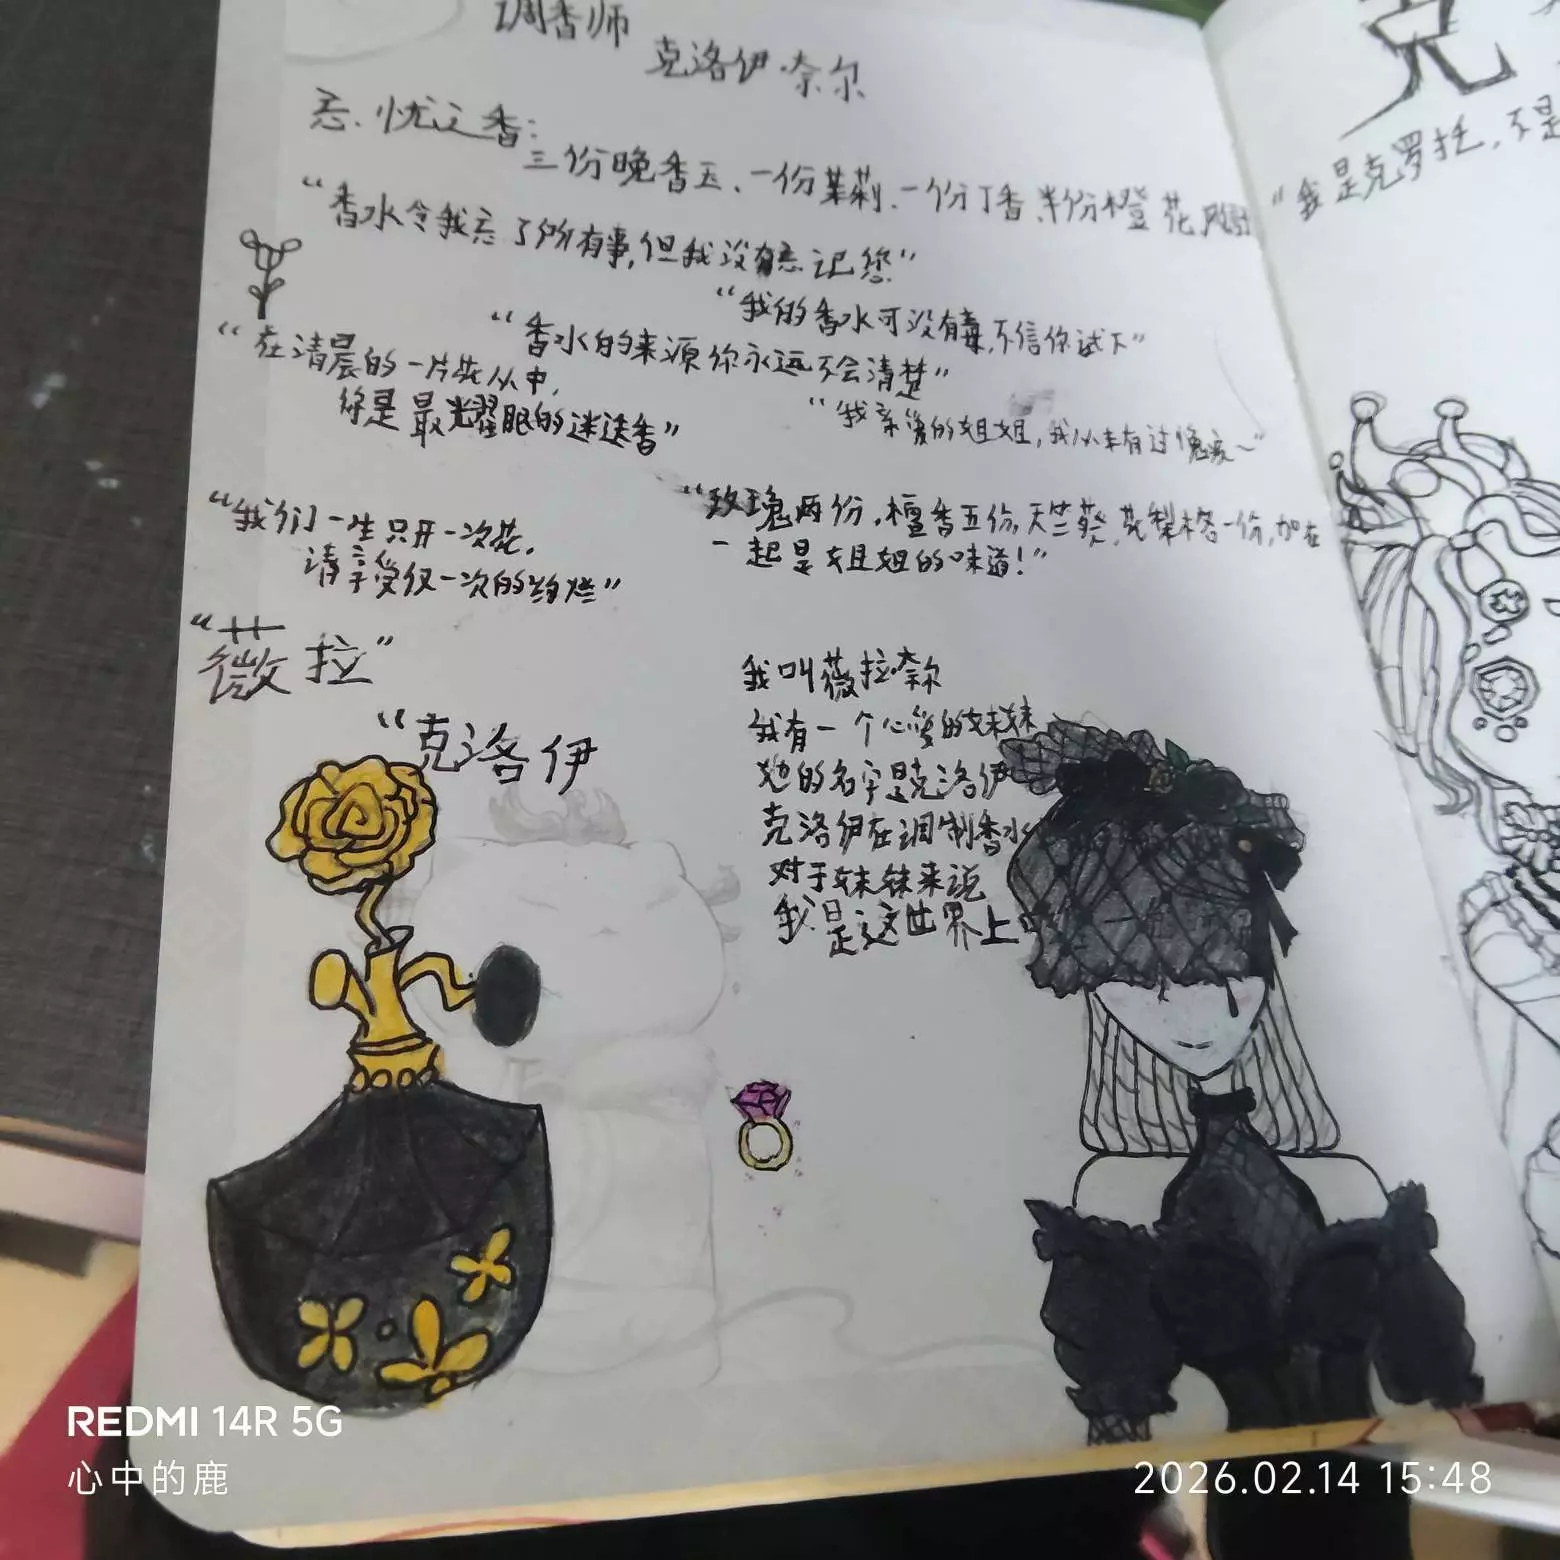 调香师
克洛伊·奈尔
忘忧之香:
三份晚香玉、一份茉莉、一份丁香、半份橙花
"香水令我忘了所有事,但我没有忘记您"
"我的香水可没有毒,不信你试下"
"香水的来源你永远不会清楚"
"在清晨的一片花丛中,
你是最光耀眼的迷迭香"
"我亲爱的姐姐,我从未有过愧疚~"
"我们一生只开一次花,
请享受仅一次的绚烂"
"玫瑰两份,檀香五份,天竺葵、花梨木各一份,加在
一起是姐姐的味道!"
"薇拉"
"克洛伊
我叫薇拉·奈尔
我有一个心爱的妹妹
她的名字是克洛伊
克洛伊在调制香水
对于妹妹来说
我是这世界上
克
"我是克罗托,不是
REDMI 14R 5G
心中的鹿
2026.02.14 15:48